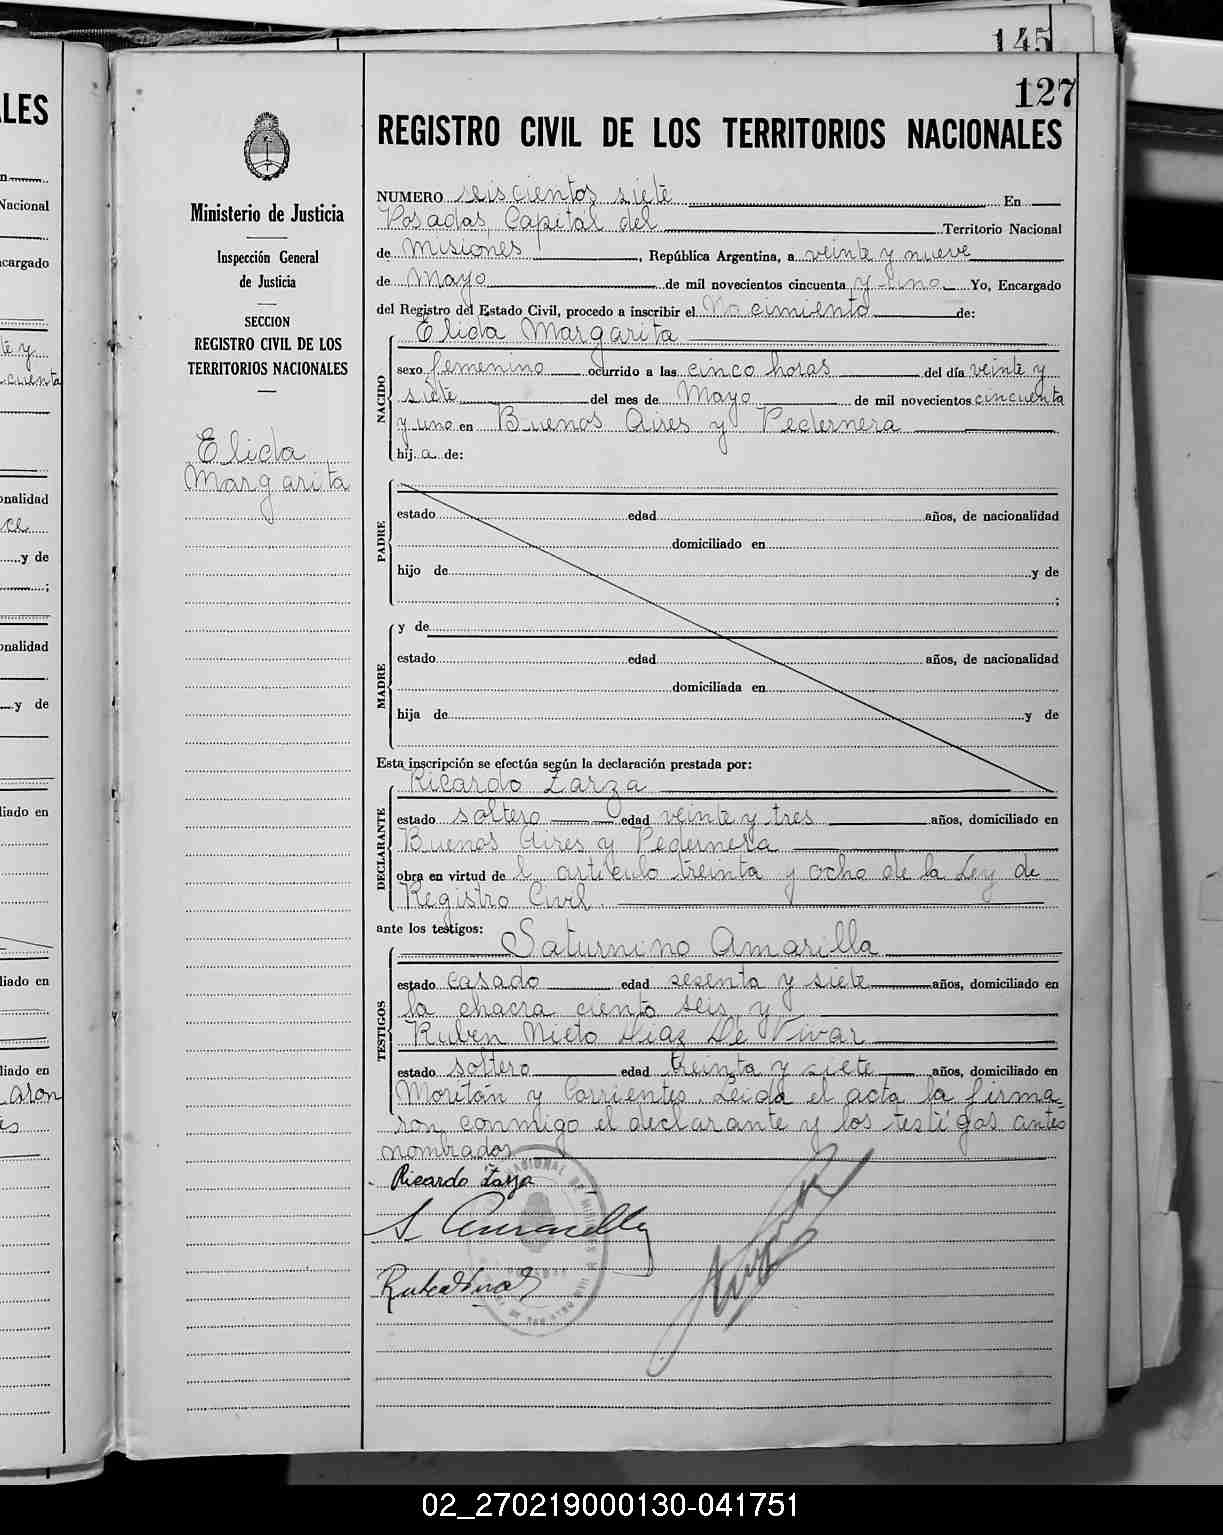 145
127
REGISTRO CIVIL DE LOS TERRITORIOS NACIONALES
Ministerio de Justicia
Inspección General
de Justicia
SECCION
REGISTRO CIVIL DE LOS
TERRITORIOS NACIONALES
Elida
Margarita
NUMERO seiscientos siete En
Posadas, Capital del Territorio Nacional
de Misiones, República Argentina, a veinte y nueve
de Mayo de mil novecientos cincuenta y uno Yo, Encargado
del Registro del Estado Civil, procedo a inscribir el Nacimiento de:
Elida Margarita
NACIDO
sexo femenino ocurrido a las cinco horas del día veinte y
siete del mes de Mayo de mil novecientos cincuenta
y uno en Buenos Aires y Pedernera
hija de:
PADRE
estado edad años, de nacionalidad
domiciliado en
hijo de y de
;
MADRE
y de
estado edad años, de nacionalidad
domiciliada en
hija de y de
Esta inscripción se efectúa según la declaración prestada por:
Ricardo Zarza
DECLARANTE
estado soltero edad veinte y tres años, domiciliado en
Buenos Aires y Pedernera
obra en virtud de l artículo treinta y ocho de la Ley de
Registro Civil.
ante los testigos:
Saturnino Amarilla
TESTIGOS
estado casado edad sesenta y siete años, domiciliado en
la chacra ciento seis y
Ruben Nieto Diaz De Vivar
estado soltero edad treinta y siete años, domiciliado en
Moritán y Corrientes. Leida el acta la firma-
ron conmigo el declarante y los testigos antes
nombrados
Ricardo Zarza
S Amarilla
02_270219000130-041751